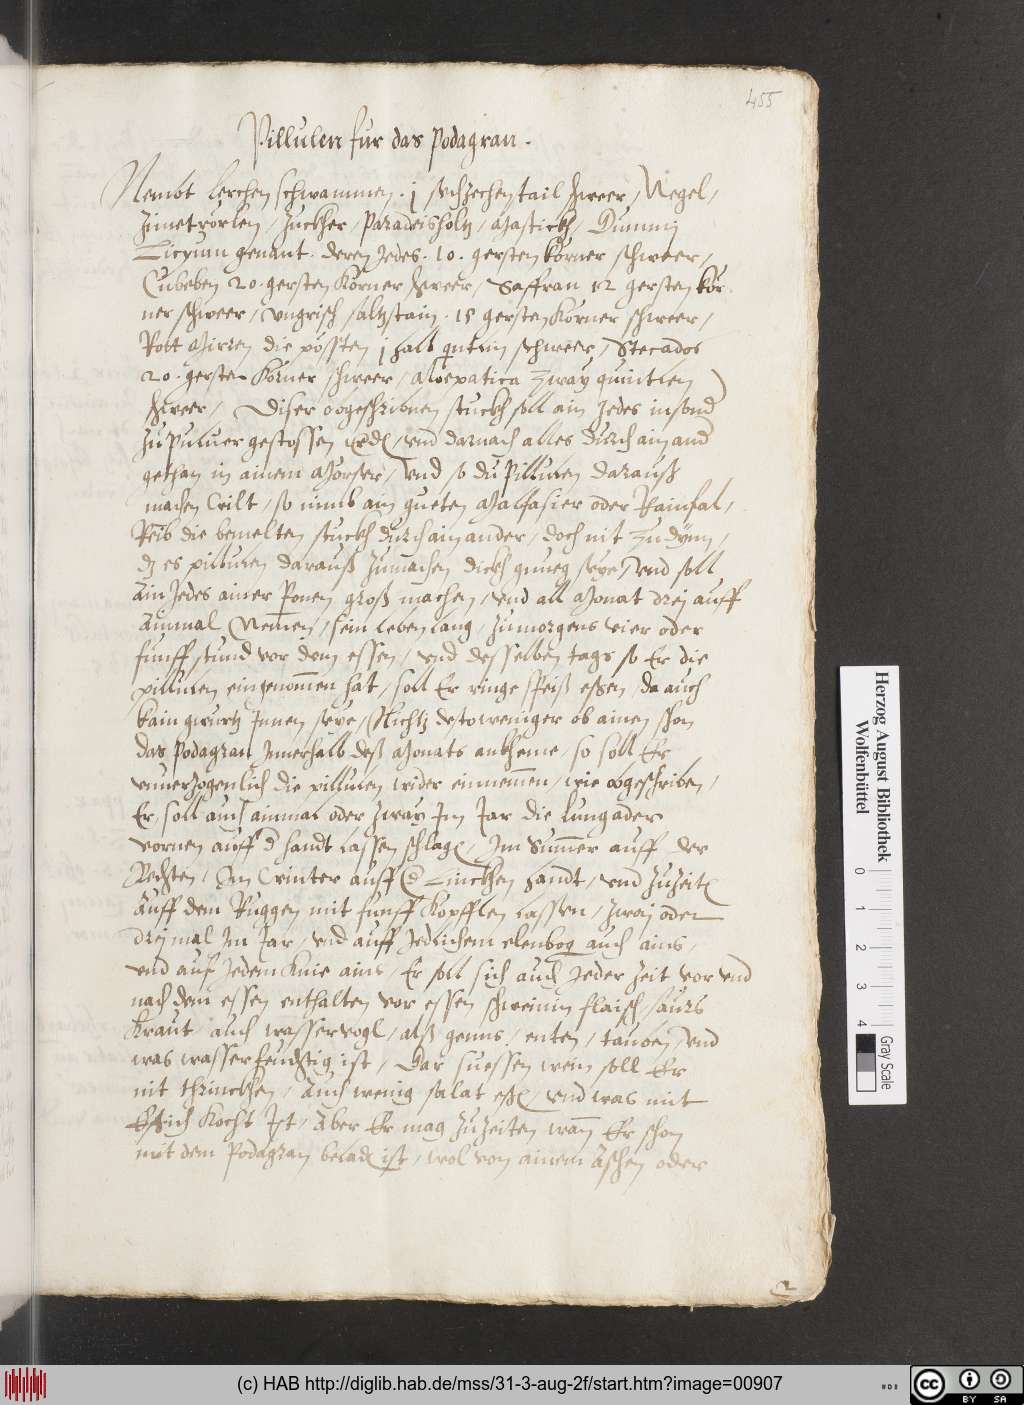 455
Pillulen fur das Podagran.
Nembt lerchen schwammen . j sechzechen tail schweer / Negel /
Zimetrörlen / Zuckher / Paradeisholtz / Mastickh / Gummj
Licyum genant . deren Jedes . 10 . gersten körner schweer /
Cubeben 20 . gersten Körner schweer / Saffran 12 gersten kör
ner schweer / Ungrisch saltzstain . 15 gersten Körner schweer /
Rott Mirren die pössten j halb quintin schweer / Stecados
20 . gersten Körner schweer / Aloepatica Zway quintlen
schweer / Diser obgeschribnen stuckh soll ain Jedes in sond
zu puluer gestossen werden / vnd darnach alles durch ain and
gethan in ainem Mörser / Vnd so du Pillulen darauß
machen Wilt / so nimb ain gueten Malfasier oder Rainfal /
Reib die bemelten stuckh durch ain ander / doch nit zu dynn /
dz es pillulen darauß zumachen dickh gnueg seye / vnd soll
Ain Jedes ainer Ponen groß machen / vnd all Monat drej auff
Ainmal Nemen / sein leben lang / zu morgens vier oder
funff stund vor dem essen / vnd desselben tags so Er die
pillulen eingenommen hat / soll Er ringe speiß essen / da auch
kain gwurtz Jnnen seye / Nichtz destoweniger ob ainen schon
das Podagran Jnnerhalb deß Monats ankheme / so soll Er
vnuerzogenlich die pillulen wider einnemmen / wie obgeschriben /
Er soll auch ainmal oder zway Jm Jar die lungader
vornen auff d handt lassen schlagen / Jm Summer auff der
Rechten / Jm Winter auff d Linckhen handt / vnd zuzeiten
Auff dem Ruggen mit funff Köpfflen lassen / zwaj oder
drej mal Jm Jar / vnd auff Jedlichem elenbog auch ains /
vnd auf Jedem Knie ains / Er soll sich auch Jeder Zeit vor vnd
nach dem essen enthalten vor essen schweinin flaisch / saurs
Kraut auch wasservogl / alß genns / enten / tauben / vnd
was wasserfeuchtig ist / Gar suessen wein soll Er
nit thrinckhen / Auch wenig salat essen / vnd was mit
Essich Kocht Jst / Aber Er mag zuzeiten wann Er schon
mit dem Podagran beladen ist / wol von ainem Aschen oder
Herzog August Bibliothek
Wolfenbüttel
0 1 2 3 4
Gray Scale
(c) HAB http://diglib.hab.de/mss/31-3-aug-2f/start.htm?image=00907
cc BY SA